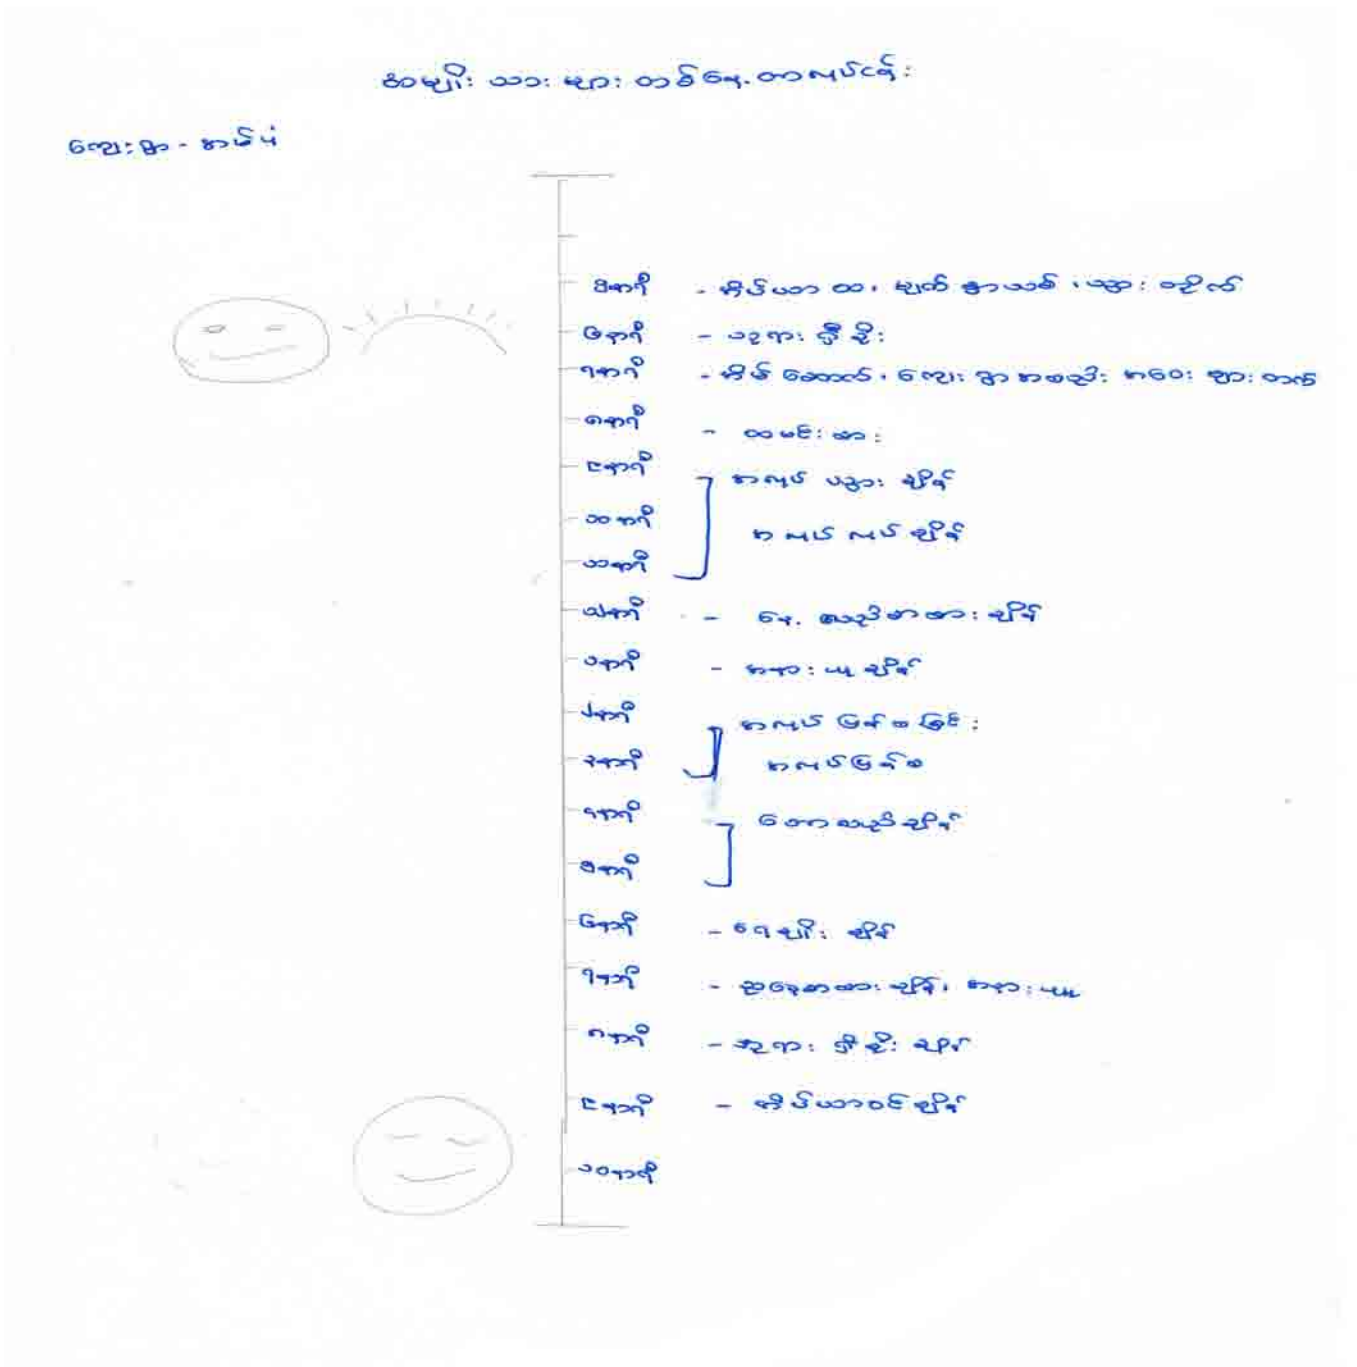 အမျိုးသားများ တစ်နေ့တာလုပ်ငန်း
ကျေးရွာ - စာမ်ပုံ
၅နာရီ - အိပ်ယာထ၊ မျက်နှာသစ်၊ သွားတိုက်
၆နာရီ - ဘုရားရှိခိုး
၇နာရီ - အိမ်ထောက်၊ ကျေးရွာအစည်းအဝေးများတက်
၈နာရီ - ထမင်းစား
၉နာရီ အလုပ်သွားချိန်
၁၀နာရီ အလုပ်လုပ်ချိန်
၁၁နာရီ
၁၂နာရီ - နေ့လည်စာစားချိန်
၁နာရီ - အနားယူချိန်
၂နာရီ အလုပ်ပြန်စခြင်း
၃နာရီ အလုပ်ပြန်စ
၄နာရီ တောလည်ချိန်
၅နာရီ
၆နာရီ - ရေချိုးချိန်
၇နာရီ - ညနေစာစားချိန်၊ အနားယူ
၈နာရီ - ဘုရားရှိခိုးချိန်
၉နာရီ - အိပ်ယာဝင်ချိန်
၁၀နာရီ